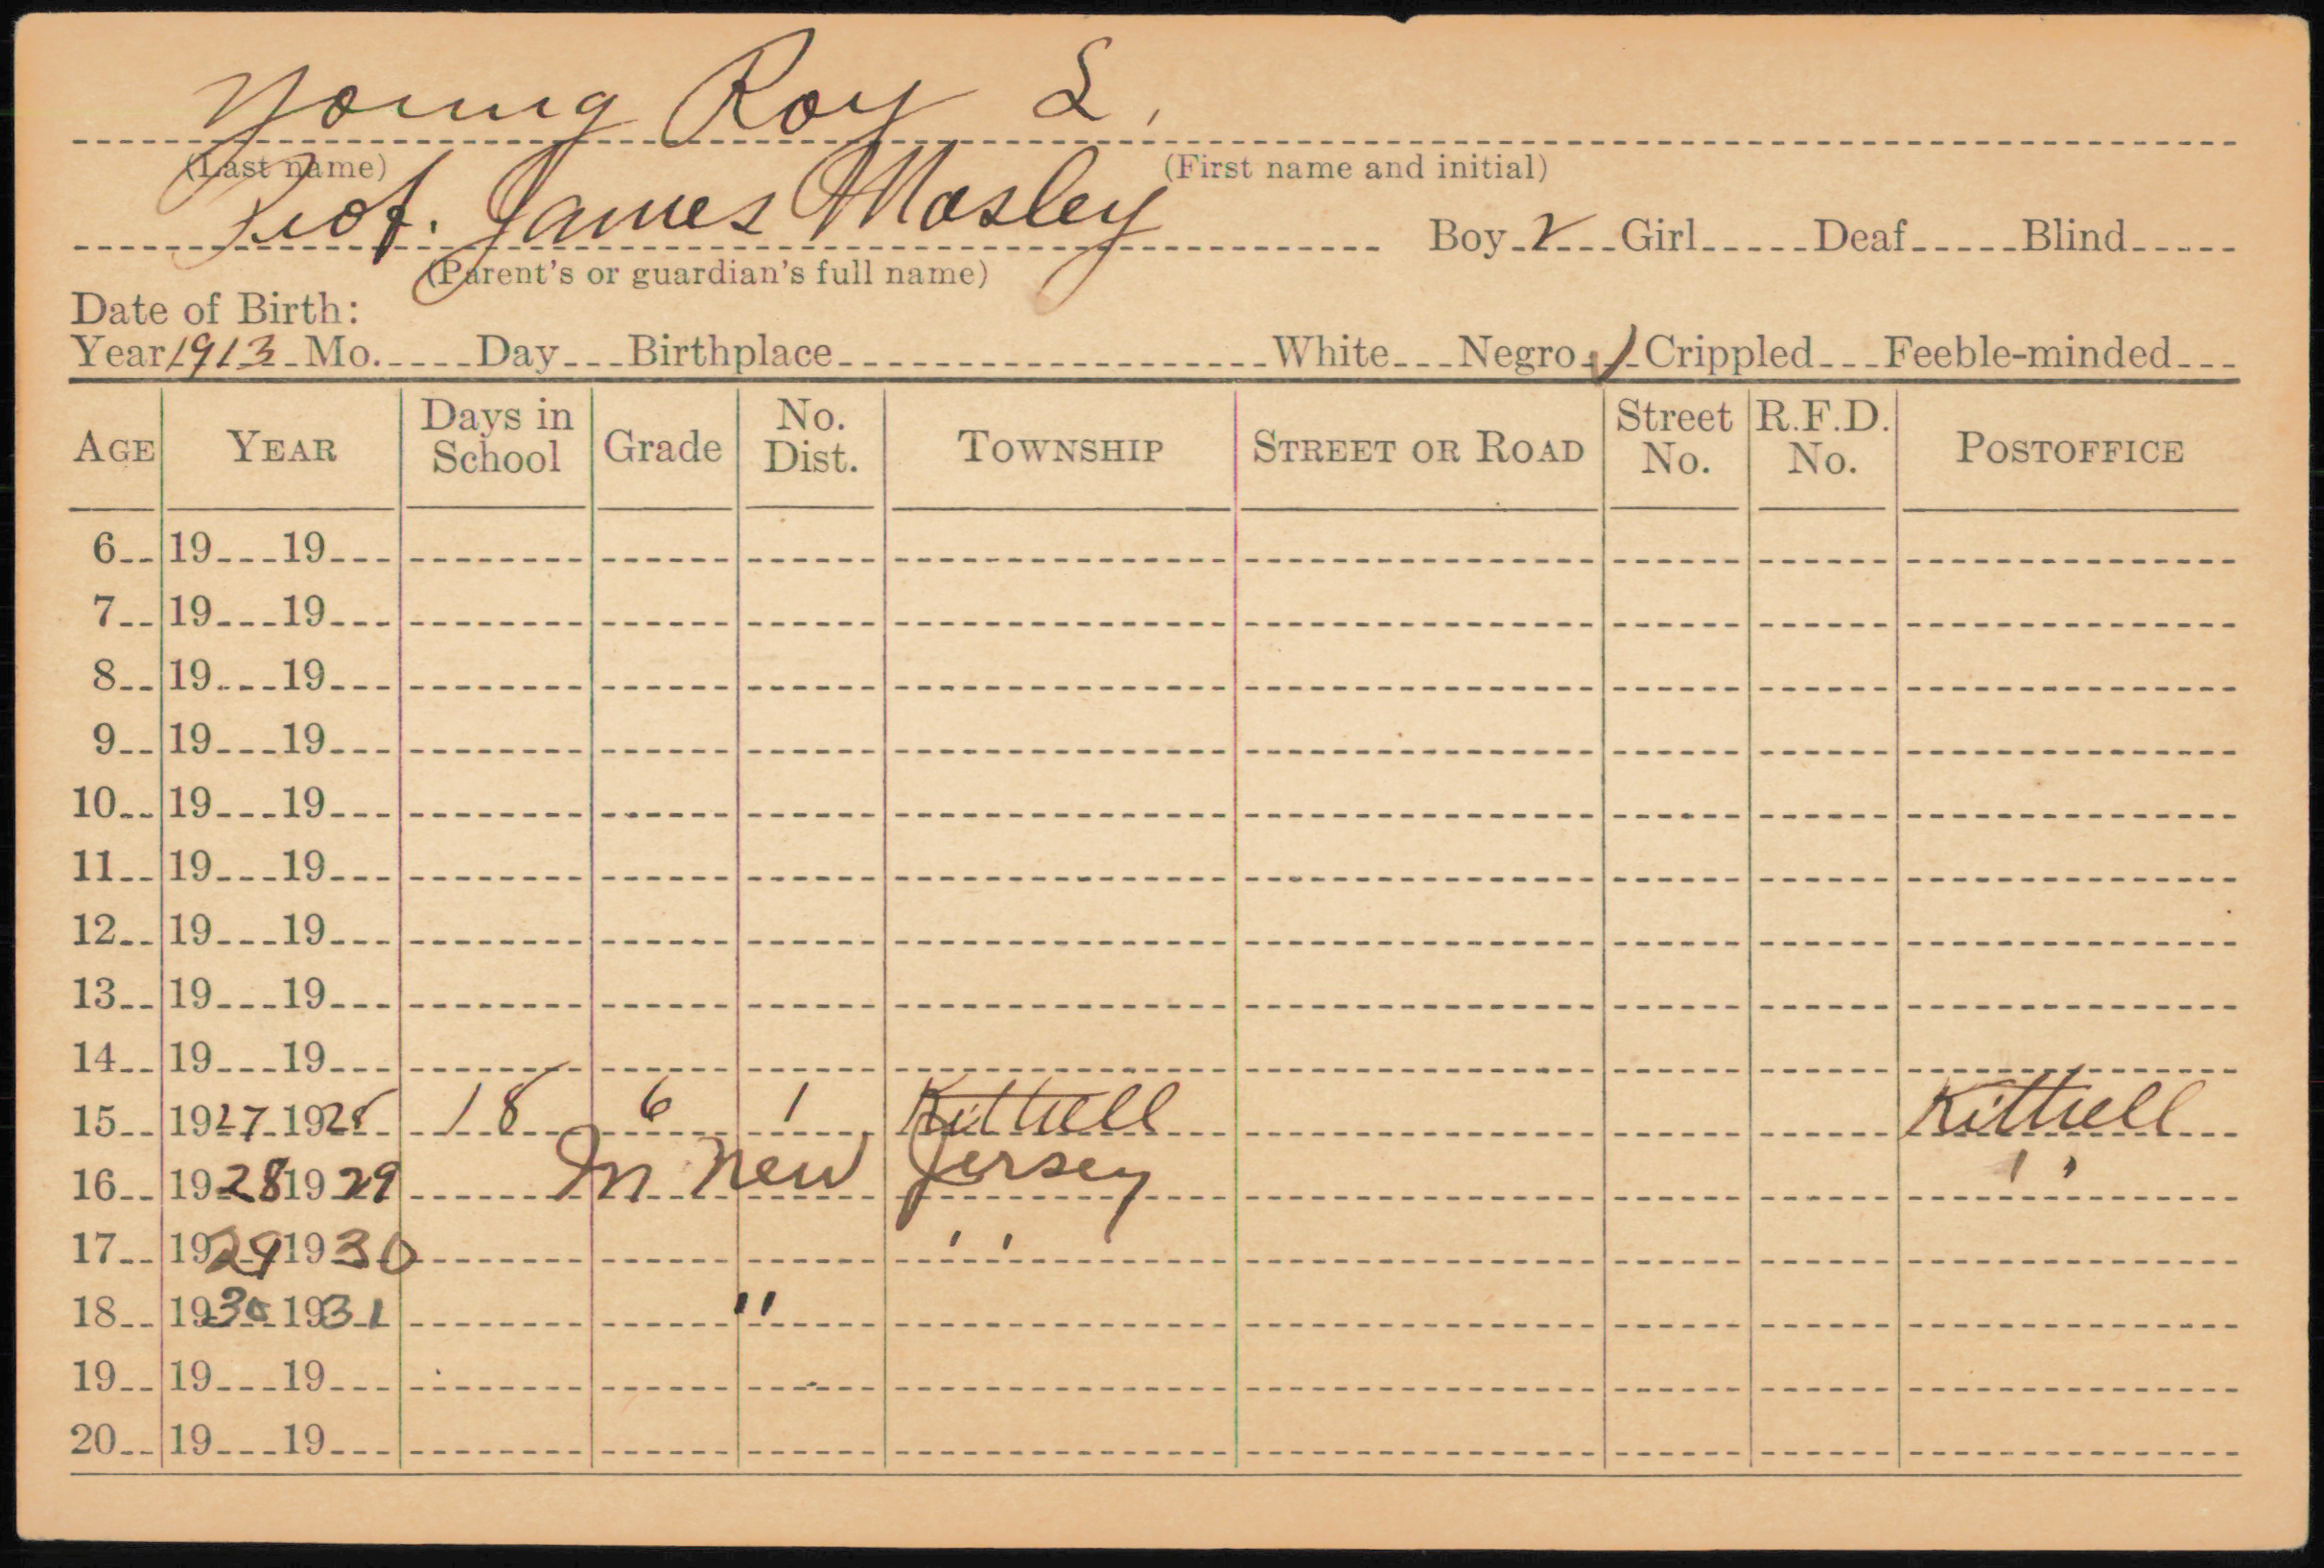 Young Roy S.
(Last name) (First name and initial)
Prof. James Mosley Boy ✓ Girl Deaf Blind
(Parent's or guardian's full name)
Date of Birth:
Year 1913 Mo. Day Birthplace White Negro ✓ Crippled Feeble-minded
AGE YEAR Days in School Grade No. Dist. TOWNSHIP STREET OR ROAD Street No. R.F.D. No. POSTOFFICE
6 19 19
7 19 19
8 19 19
9 19 19
10 19 19
11 19 19
12 19 19
13 19 19
14 19 19
15 1927 1928 18 6 1 Kittrell Kittrell
16 1928 1929 In New Jersey " 
17 1929 1930 "
18 1930 1931 "
19 19 19
20 19 19